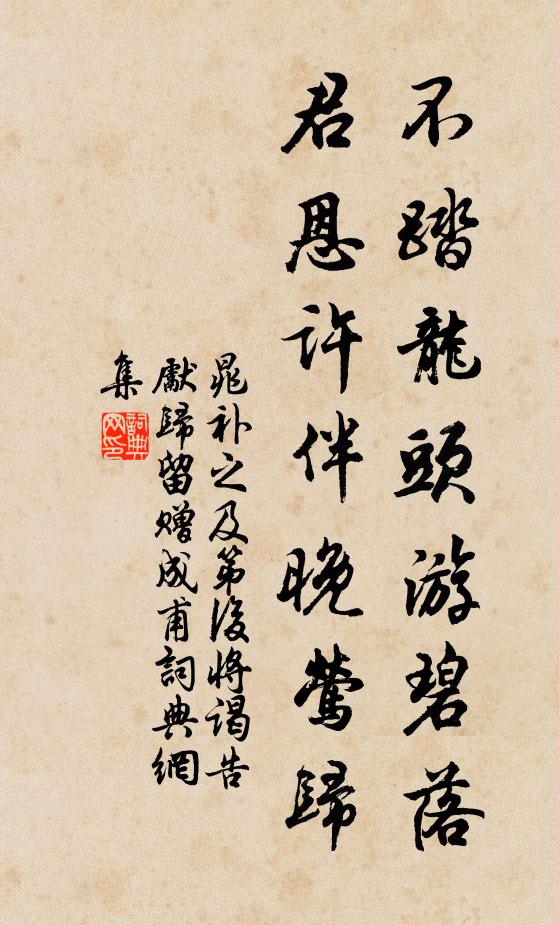 不踏龍頭游碧落
君恩許伴晚鶯歸
晁补之及第後將謁告
獻歸留贈成甫詞典網
集
詞典
网印